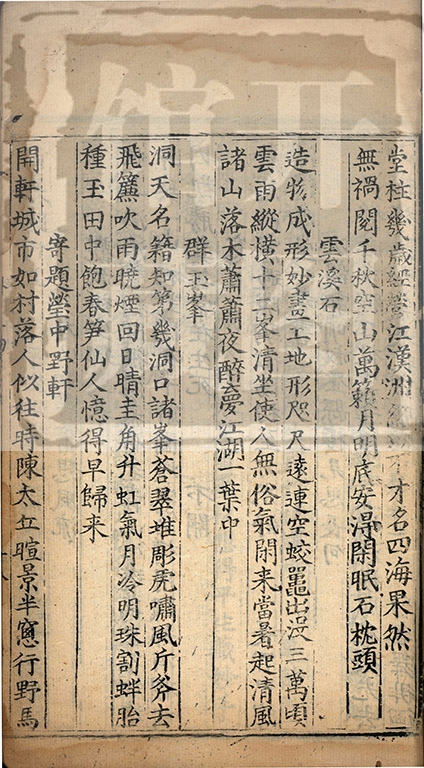 堂柱幾歲經營江漢洲才名四海果然
無禍閱千秋空山萬籟月明底安得閑眠石枕頭
雲溪石
造物成形妙畫工地形咫尺遠連空蛟鼉出沒三萬頃
雲雨縱横十二峯清坐使人無俗氣閑来當暑起清風
諸山落木蕭蕭夜醉夢江湖一葉中
群玉峯
洞天名籍知第幾洞口諸峯蒼翠堆彫虎嘯風斤斧去
飛簾吹雨曉煙回日晴圭角升虹氣月冷明珠割蚌胎
種玉田中飽春笋仙人憶得早歸来
寄題瑩中野軒
開軒城市如村落人似往時陳太丘暄景半窻行野馬